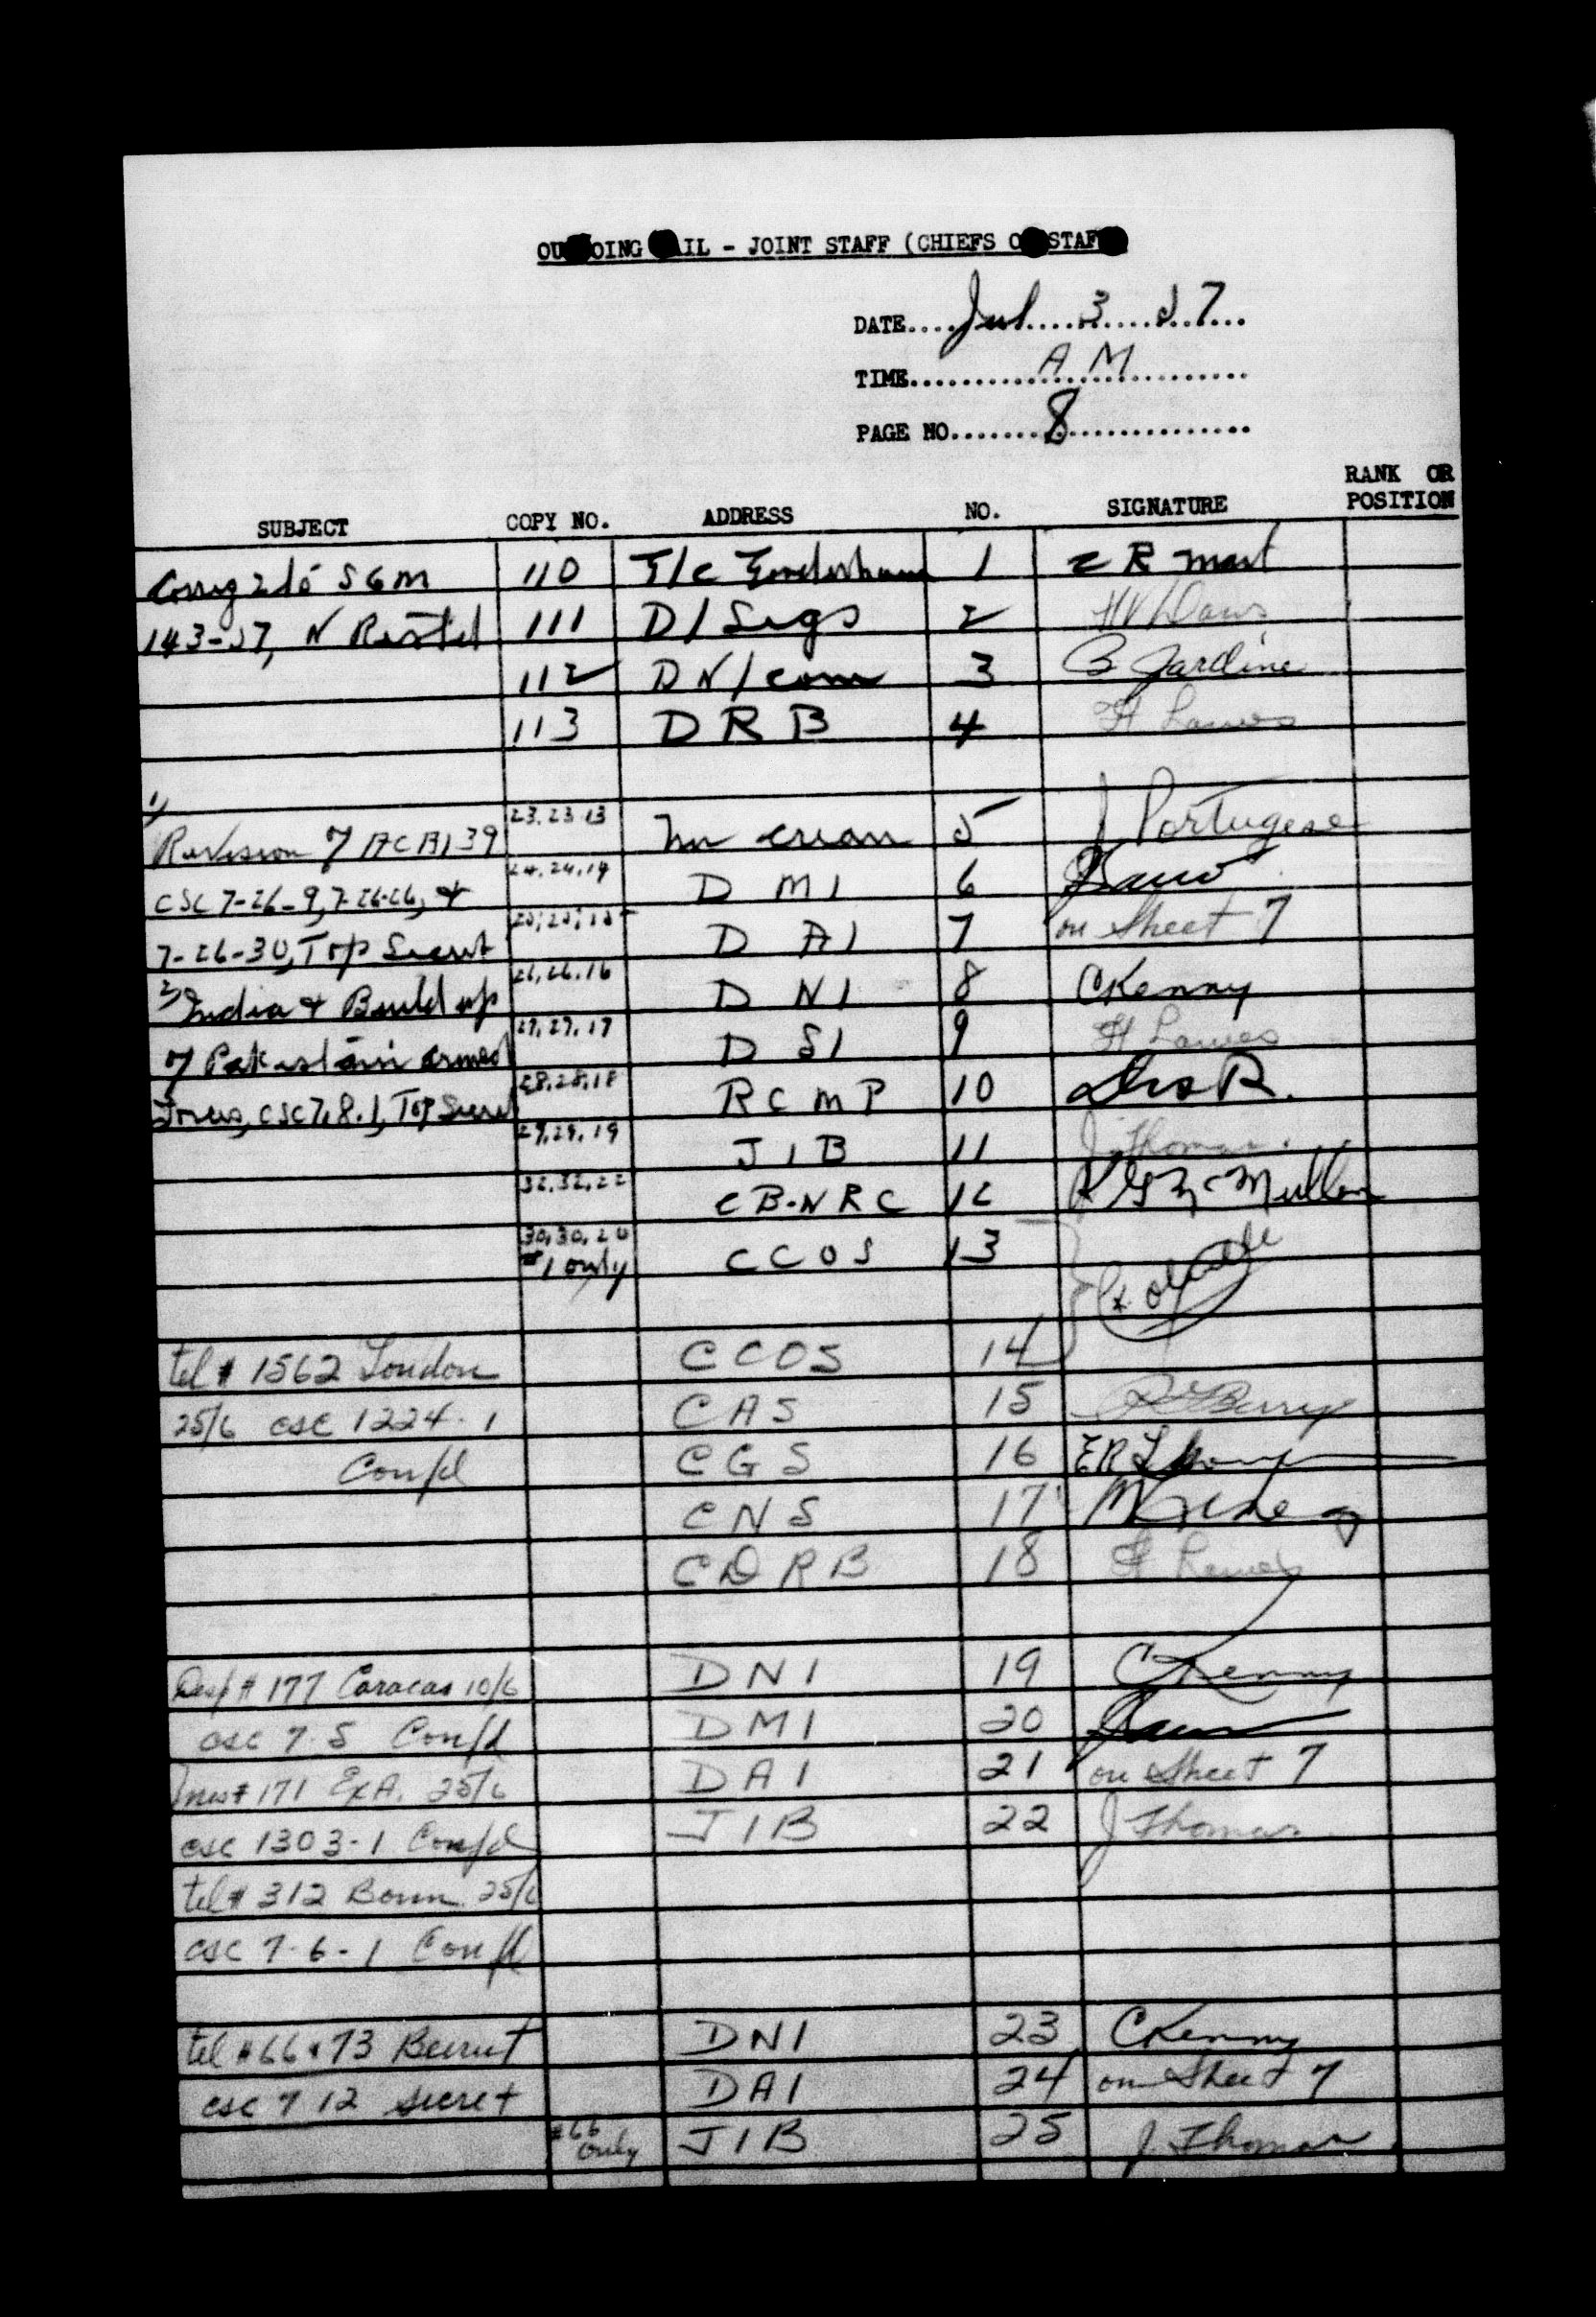 OUTGOING MAIL - JOINT STAFF (CHIEFS OF STAFF)
DATE....Jul....3....57...
TIME....AM....
PAGE NO....8....
SUBJECT COPY NO. ADDRESS NO. SIGNATURE RANK OR POSITION
Corrig 2 to SGM 110 T/C 1 E R
143-57, N Restd 111 D/Sigs 2
112 DN/Com 3 B Jardine
113 DRB 4 H Lawes
1)
Revision of 39 23.23.13 5 J Portugese
CSC 7-26-9, 7-26-26, & 24,24,14 DMI 6
7-26-30, Top Secret 25,25,15 DAI 7 on Sheet 7
2) India & Build up 26,26.16 DNI 8 CKenny
of Pakistani armed 27,27.17 DSI 9 H Lawes
Forces, CSC 7.8.1, Top Secret 28,28,18 RCMP 10
29,29,19 JIB 11 J Thomas.
32,32,22 CB-NRC 12 McMullen
30,30,20 #1 only CCOS 13
tel # 1562 London CCOS 14
25/6 csc 1224.1 CAS 15 Berry
Confd CGS 16
CNS 17
CDRB 18 H Lawes
Desp # 177 Caracas 10/6 DNI 19 CKenny
csc 7.5 Confd DMI 20
# 171 ExA. 25/6 DAI 21 on Sheet 7
csc 1303-1 Confd JIB 22 J Thomas
tel # 312 Bonn 25/6
csc 7-6-1 Confd
tel #66 & 73 Beirut DNI 23 CKenny
csc 7 12 secret DAI 24 on Sheet 7
#66 only JIB 25 J. Thomas